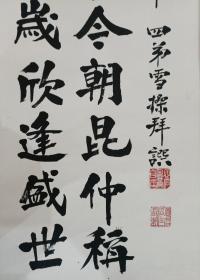 四弟雪操拜譔
今朝昆仲稱
歲欣逢盛世